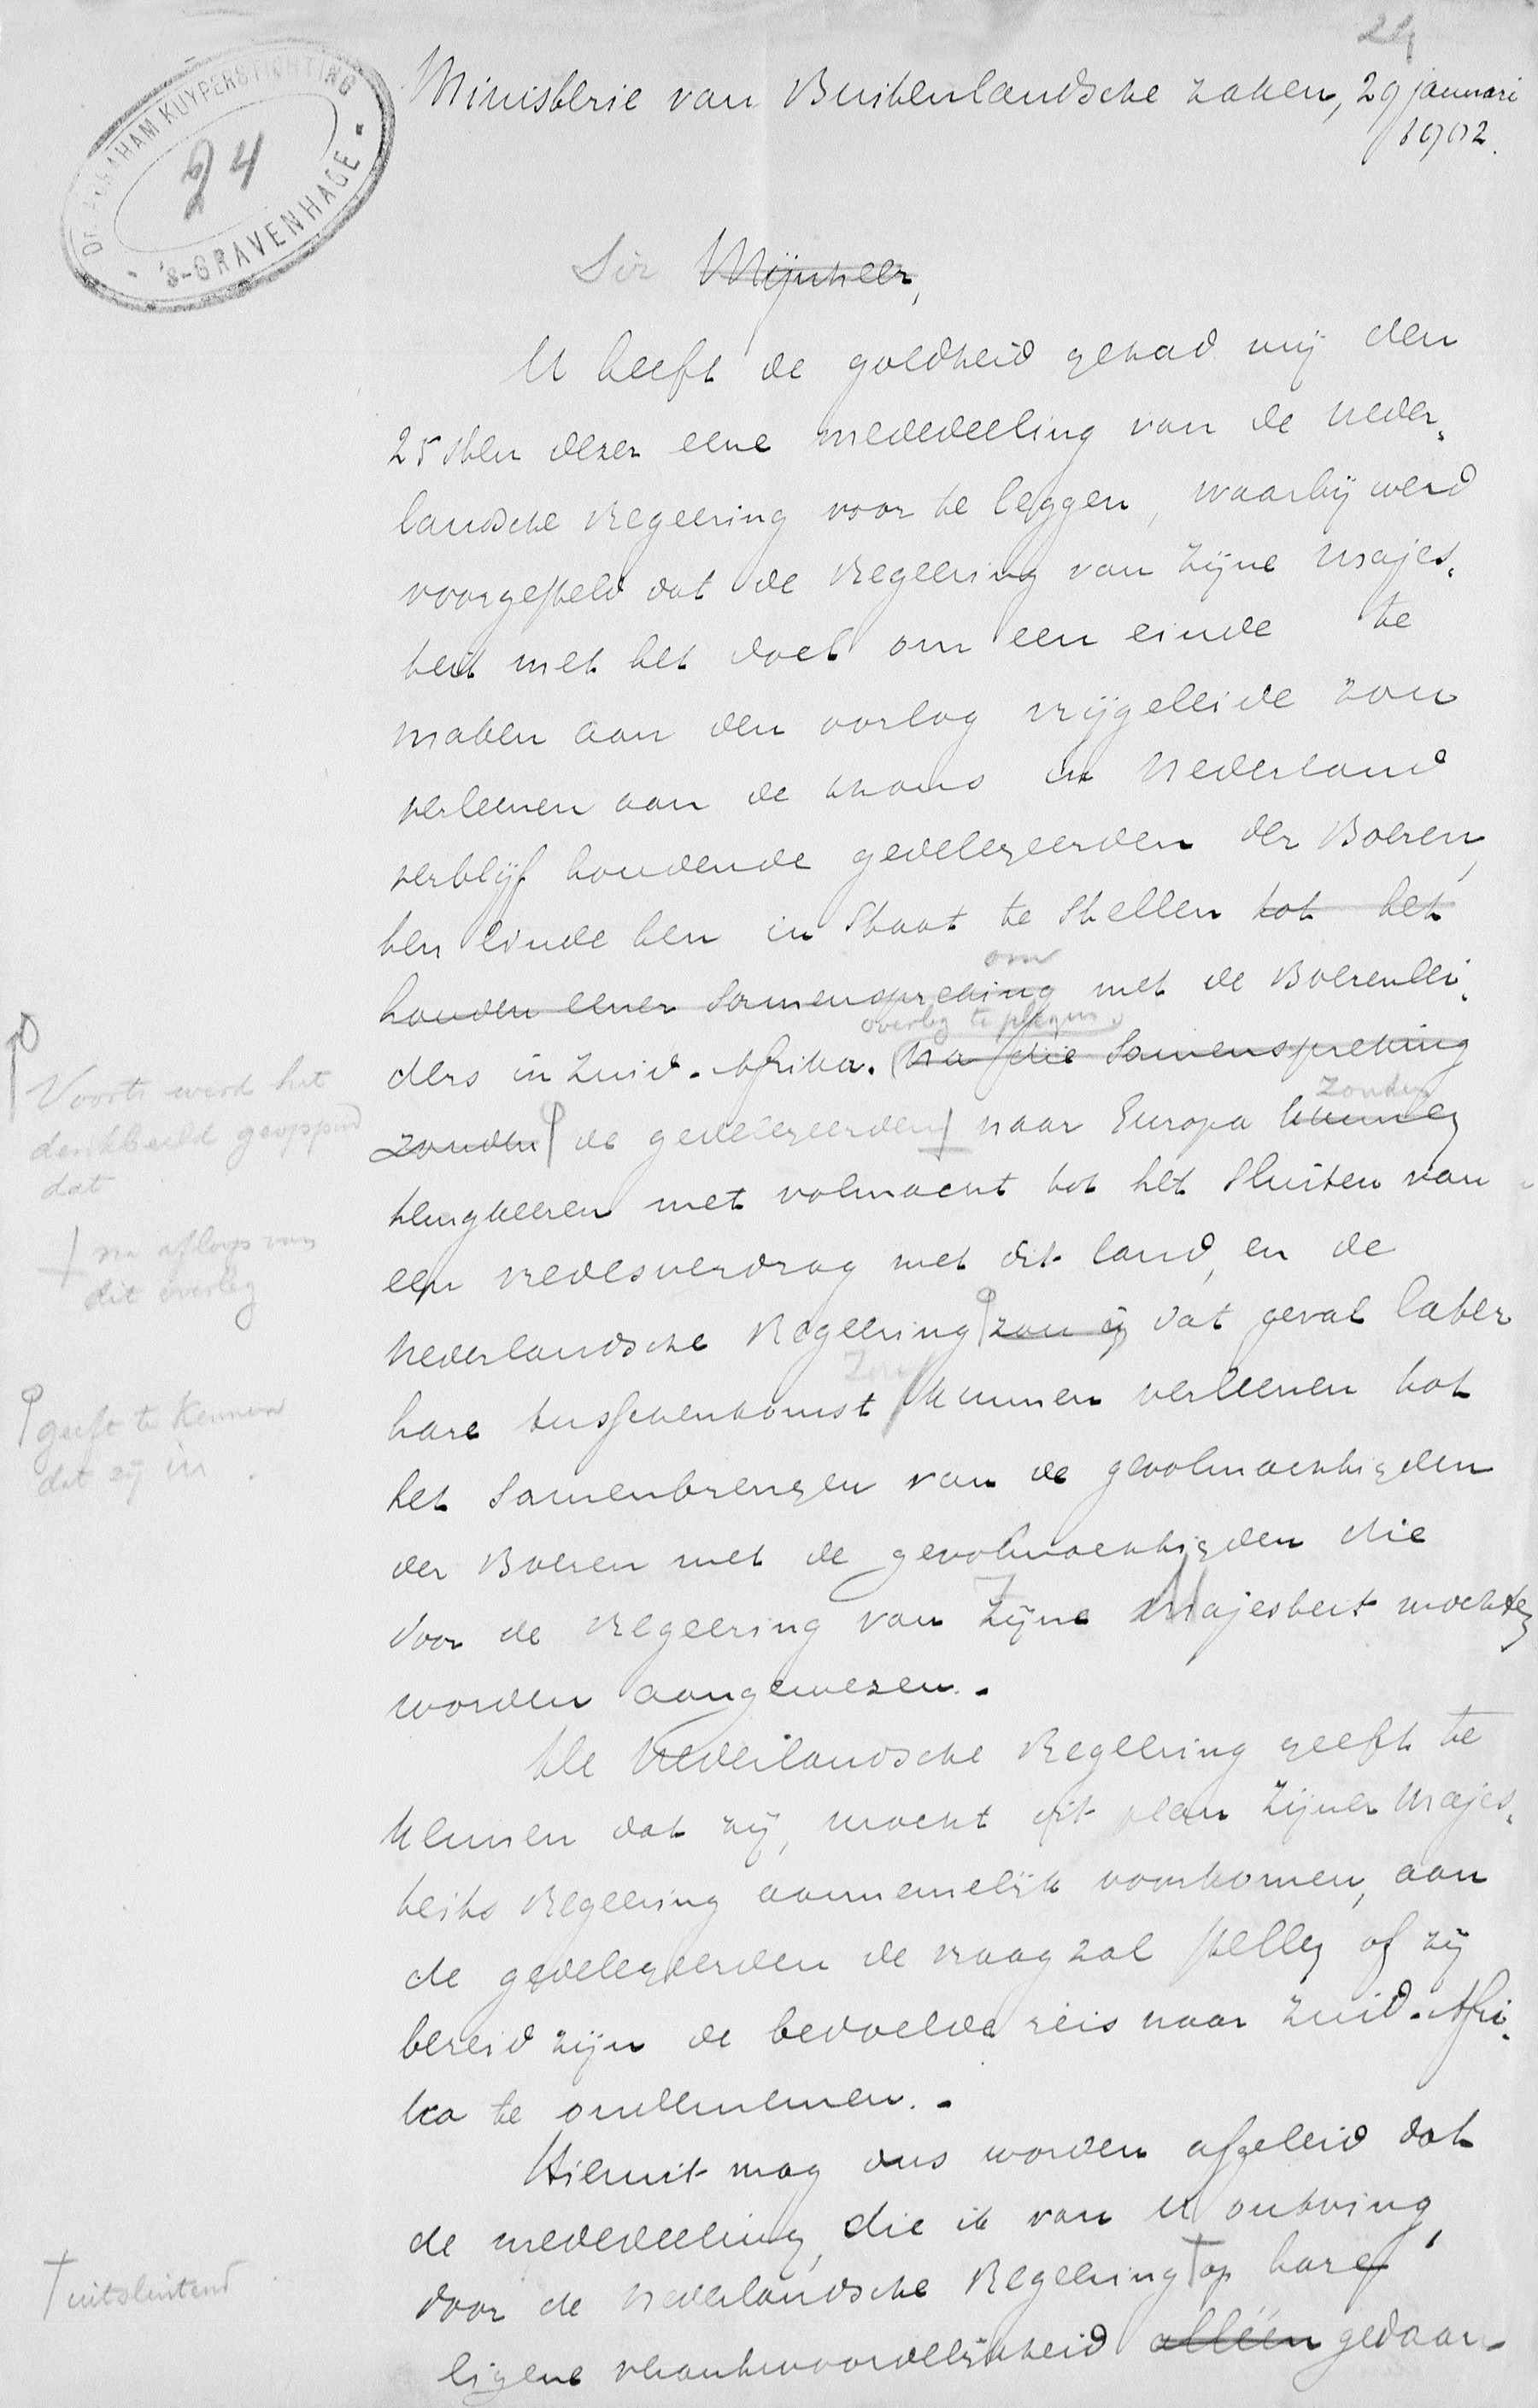 24
Ministerie van Buitenlandsche Zaken, 29 januari
1902.
Dr ABRAHAM KUYPERSTICHTING
24
'S-GRAVENHAGE
Sir Mijnheer,
U heeft de goedheid gehad mij den
25sten dezer eene mededeeling van de Neder-
landsche Regeering voor te leggen, waarbij werd
voorgesteld dat de Regeering van Zijne Majes-
teit met het doel om een einde te
maken aan den oorlog vrijgeleide zou
verleenen aan de thans in Nederland
verblijf houdende gedelegeerden der Boeren,
ten einde hen in staat te stellen tot het
om
houden eener samenspreking met de Boerenlei-
overleg te plegen
ders in Zuid-Afrika. Na die samenspreking
Voorts werd het
denkbeeld geopperd
dat
zonder
zouden de gedelegeerden naar Europa kunnen
na afloop van
dit overleg
terugkeeren met volmacht tot het sluiten van
een vredesverdrag met dit land, en de
Nederlandsche Regeering zou in dat geval later
geeft te kennen
dat zij in
zou
hare tusschenkomst kunnen verleenen tot
het samenbrengen van de gevolmachtigden
der Boeren met de gevolmachtigden die
door de Regeering van Zijne Majesteit mochten
worden aangewezen.
De Nederlandsche Regeering geeft te
kennen dat zij, mocht dit plan Zijner Majes-
teits Regeering aannemelijk voorkomen, aan
de gedelegeerden de vraag zal stellen of zij
bereid zijn de bedoelde reis naar Zuid-Afri-
ka te ondernemen.
Hieruit mag dus worden afgeleid dat
de mededeeling, die ik van U ontving,
door de Nederlandsche Regeering op hare
uitsluitend
eigene verantwoordelijkheid alléén gedaan